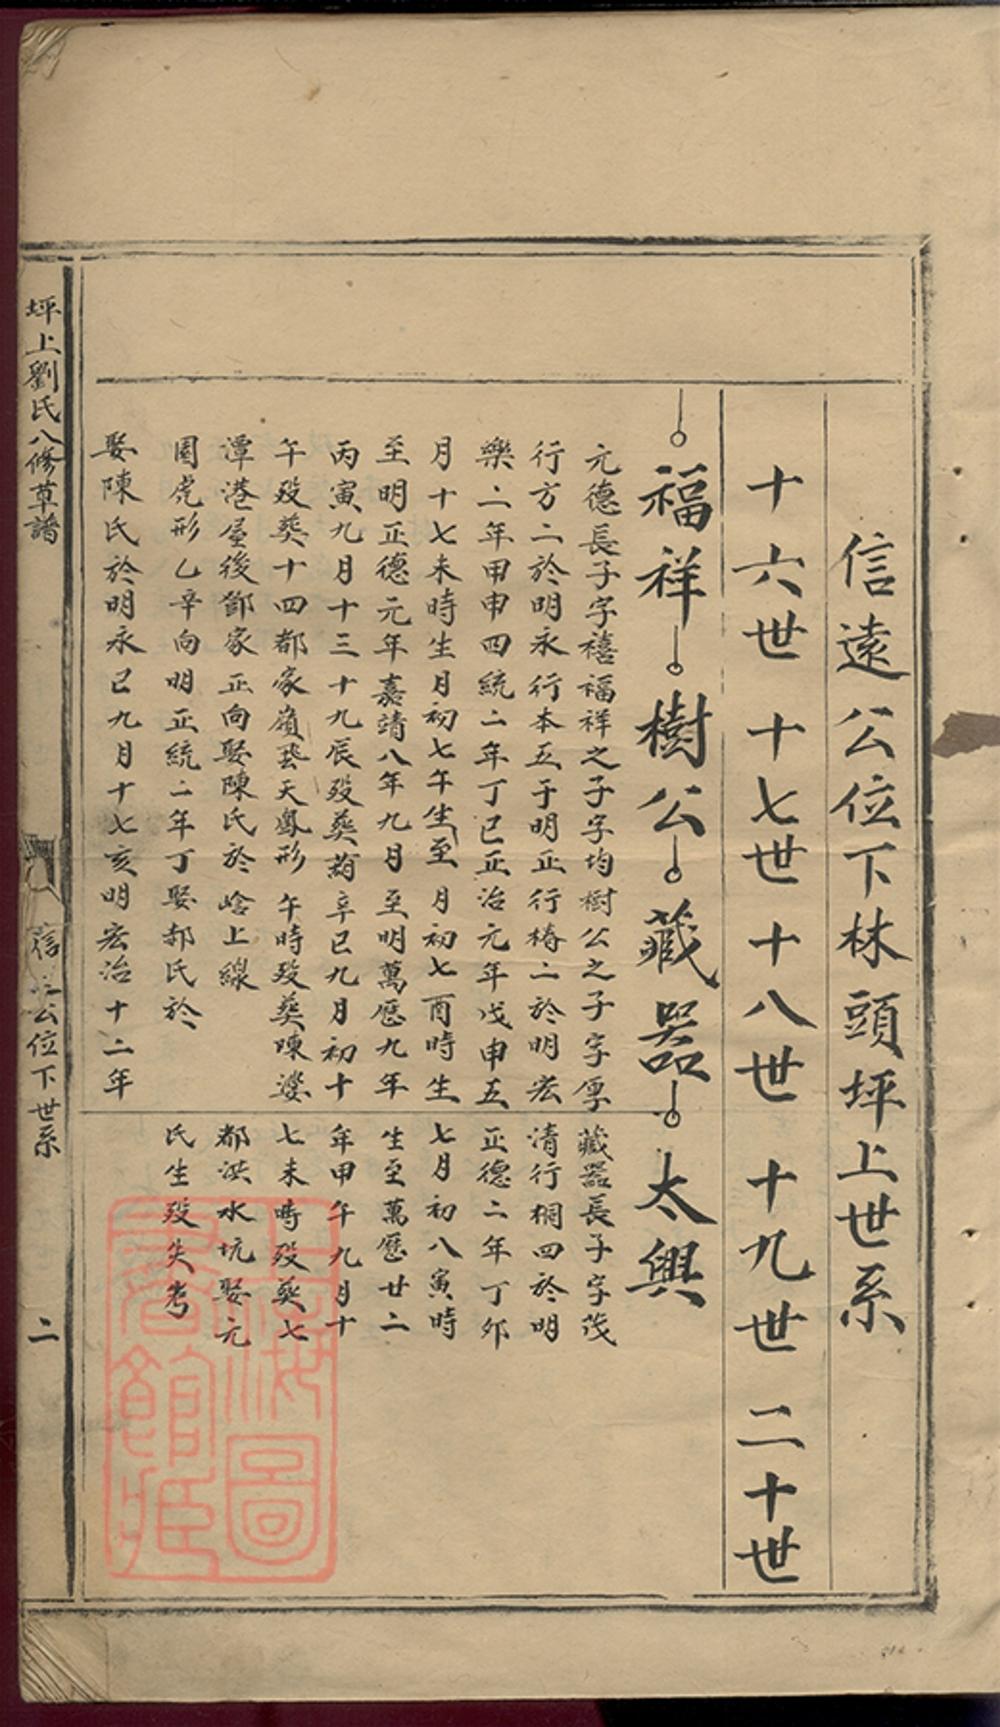 信遠公位下林頭坪上世系
十六世 十七世 十八世 十九世 二十世
福祥 樹公 藏器 太興
元德長子字禧福祥之子字均樹公之子字厚
行方二於明永行本五于明正行椿二於明宏
樂二年甲申四統二年丁巳正治元年戊申五
月十七未時生月初七午生至月初七酉時生
至明正德元年嘉靖八年九月至明萬歷九年
丙寅九月十三十九辰歿葬蒴辛巳九月初十
午歿葬十四都家嶺䂖天鳳形午時歿葬陳婆
潭港屋後鄧家正向娶陳氏於峆上線
園虎形乙辛向明正統二年丁娶郝氏於
娶陳氏於明永巳九月十七亥明宏治十二年
藏器長子字茂
清行桐四於明
正德二年丁夘
七月初八寅時
生至萬歷廿二
年甲午九月十
七未時歿葬七
都洪水坑娶元
氏生歿失考
坪上劉氏八修草譜
信 公位下世系
二
上海圖
書館藏